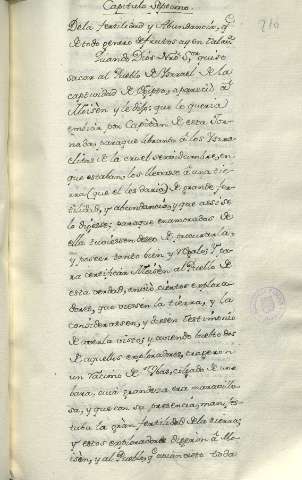 Capitulo Septimo.
210
De la fertilidad y Abundancia, q̃
de todo genero de frutos ay en Talaua
Quando Dios Nrõ S.r quiso
sacar al Pueblo de Ysrrael de la
captiuidad de Egipto, aparecio à
Moisen, y le dijo: que le queria
embiar por Capitan de esta Jor-
nada, para que librando à los Ysrra
elitas de la cruel seruidumbre, en
que estauan, los lleuase à una tie-
rra (que el les daria) de grande fer-
tilidad, y abundancia, y que assi se
lo dijesse; para que enamorados de
ella tuuiessen deseo de procurarla,
y poseer tanto bien y regalo: Y pa-
ra certificar Moisen al Pueblo de
esta verdad, embió ciertos explora-
dores, que viessen la tierra, y la
considerassen, y diesen testimonio
de auerla visto; y auiendo buelto dos
de aquellos exploradores, trageron
un Racimo de Ubas, colgado de una
bara, cuia grandeza era marauillo-
sa, y que con su presencia, manifes-
taba la gran fertilidad de la tierra;
y estos exploradores digeron à Moi-
sen, y al Pueblo, q̃ auian visto toda